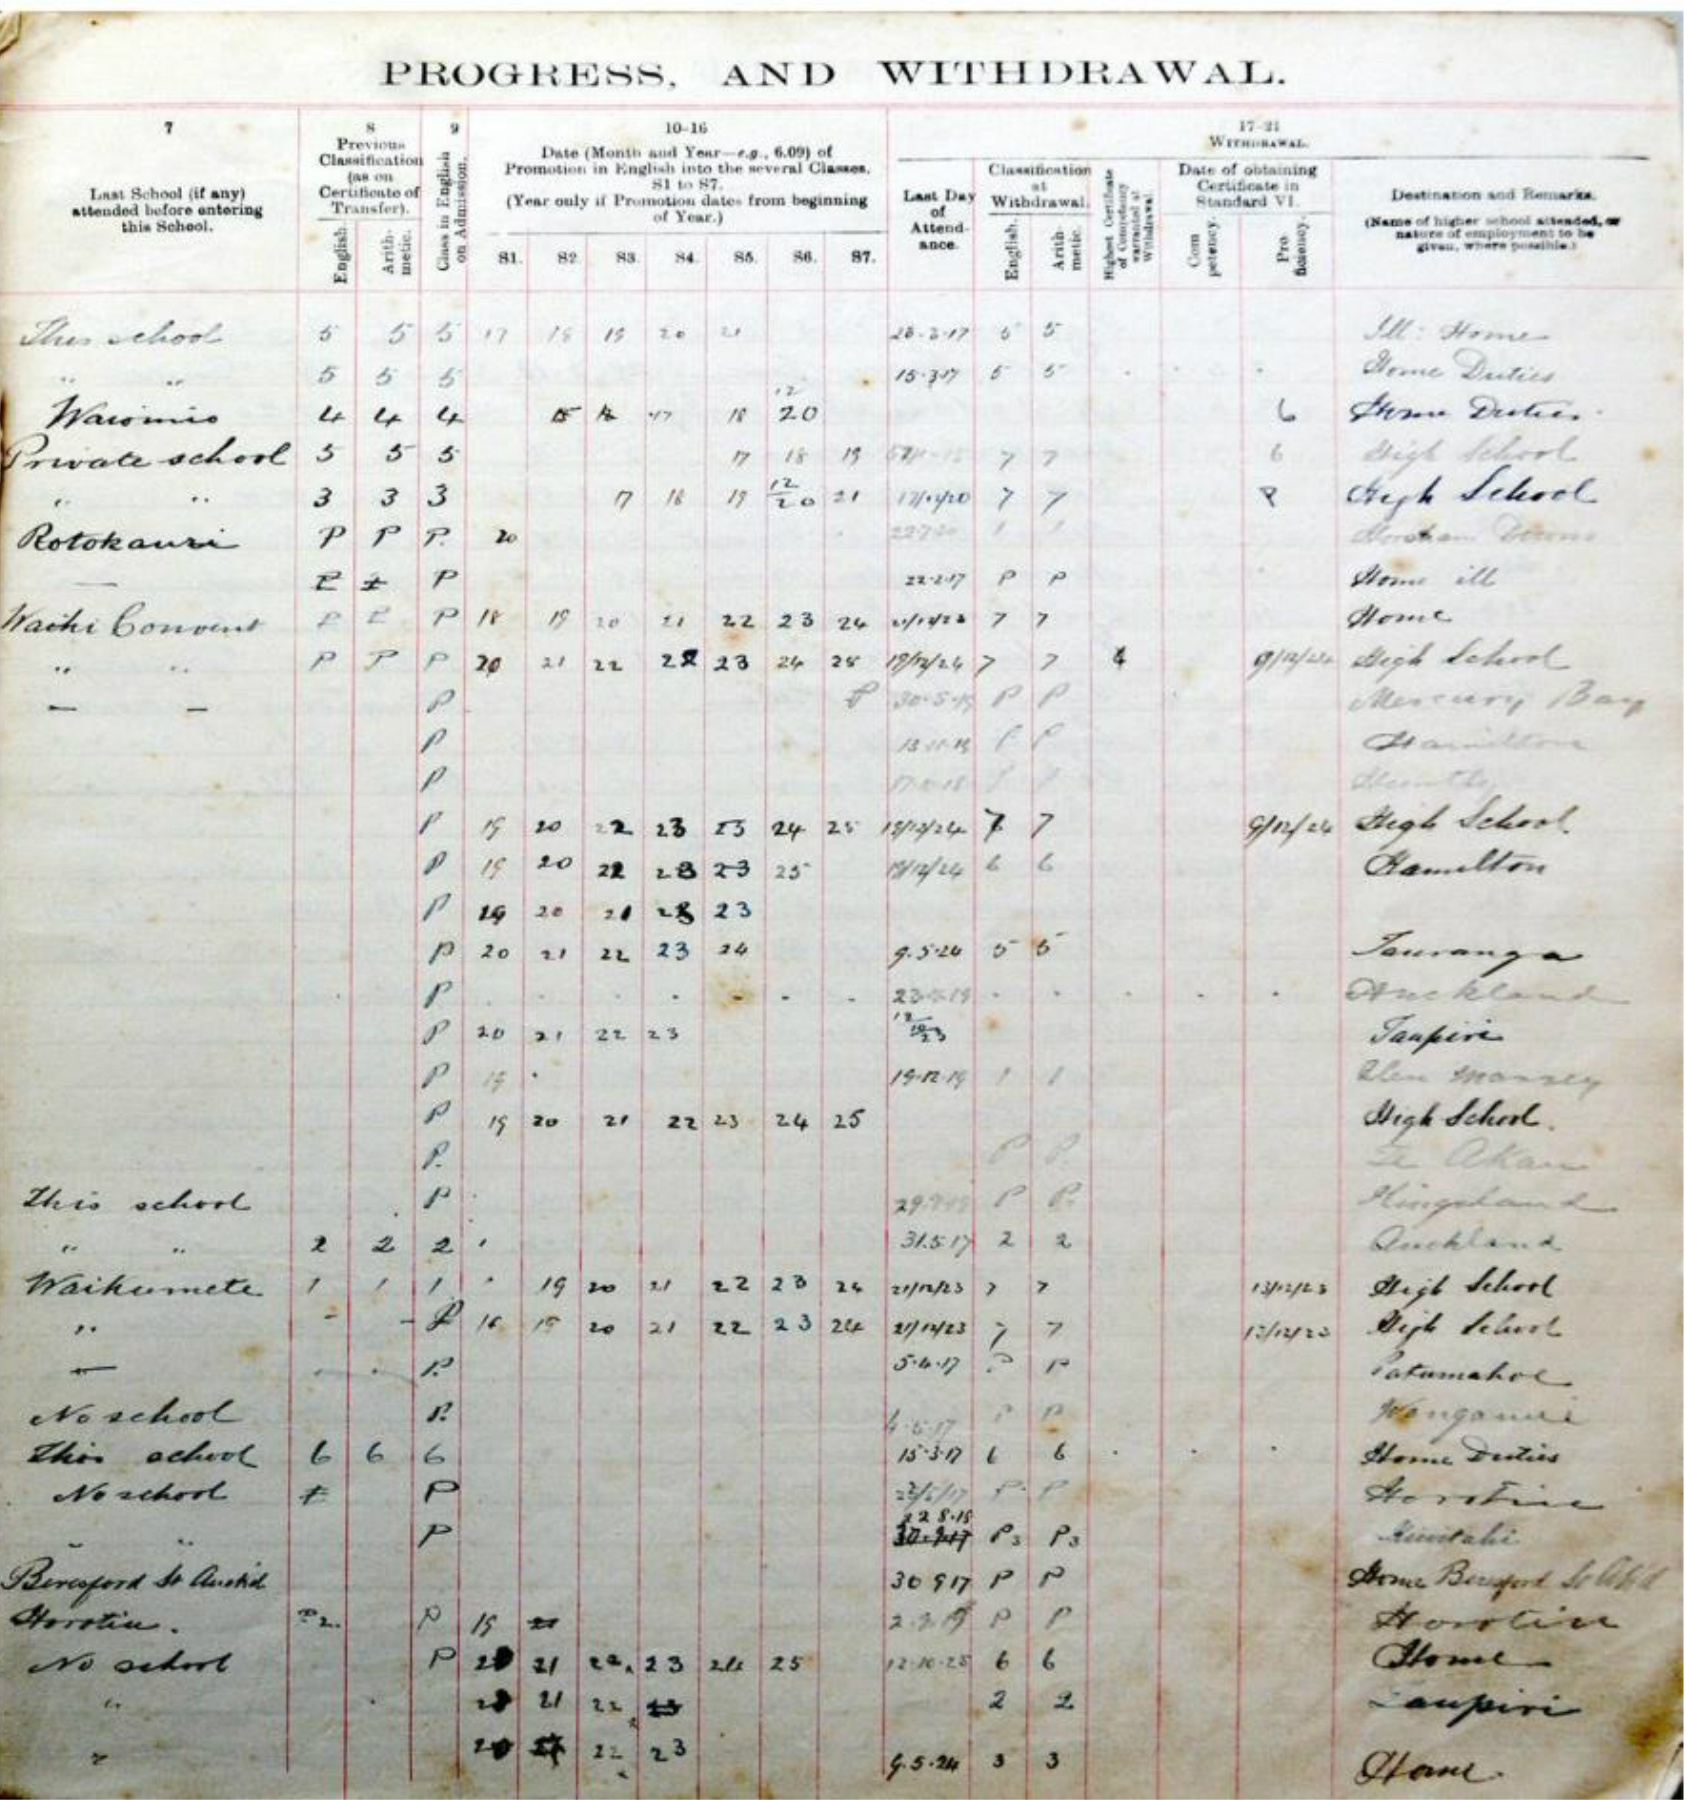 PROGRESS, AND WITHDRAWAL.
7
Last School (if any) attended before entering this School.
8
Previous Classification (as on Certificate of Transfer).
English.
Arithmetic.
9
Class in English on Admission.
10-16
Date (Month and Year—e.g., 6.09) of Promotion in English into the several Classes, S1 to S7.
(Year only if Promotion dates from beginning of Year.)
S1. S2. S3. S4. S5. S6. S7.
17-21
WITHDRAWAL.
Last Day of Attendance.
Classification at Withdrawal.
English.
Arithmetic.
Highest Certificate of Competency warranted at Withdrawal.
Date of obtaining Certificate in Standard VI.
Competency.
Proficiency.
Destination and Remarks.
(Name of higher school attended, or nature of employment to be given, where possible.)
This school 5 5 5 17 18 19 20 21 5 5 Ill: Home
" " 5 5 5 15.3.17 5 5 Home Duties
Waiomio 4 4 4 17 18 12 20 6 Home Duties.
Private school 5 5 5 17 18 19 7 7 6 High School
" " 3 3 3 17 18 19 12/20 21 7 7 High School
Rotokauri P P P. 20
— P 22.2.17 P P Home ill
Waihi Convent P P P 18 19 20 21 22 23 24 7 7 Home
" " P P P 20 21 22 23 24 25 19/12/24 7 7 High School
— — P 30.5.19 P P Mercury Bay
P Hamilton
P
P 19 20 22 23 23 24 25 19/12/24 7 7 9/12/24 High School.
P 19 20 22 23 23 25 19/12/24 6 6 Hamilton
P 19 20 21 23
P 20 21 22 23 24 9.5.24 5 5 Tauranga
P Auckland
P 20 21 22 23 Taupiri
P 19 19.12.19 1 1 Glen Massey
P 19 20 21 22 23 24 25 High School.
P. P P. Te Akau
This school P P P. Kingsland
" " 2 2 2 31.5.17 2 2 Auckland
Waikumete 1 1 1 19 20 21 22 23 24 21/12/23 7 7 13/12/23 High School
" - - P 19 20 21 22 23 24 21/12/23 7 7 13/12/23 High School
— P. 5.4.17 P P Patumahoe
No school P. P P Wanganui
This school 6 6 6 15.3.17 6 6 Home Duties
No school P P P Horotiu
" " P 22.8.18 P3 P3
Beresford St Auck'd 30 9 17 P P Home Beresford St Ak'd
Horotiu. P2. P 19 P P Horotiu
No school P 21 22. 23 24 25 12.10.25 6 6 Home
" 21 22 2 2 Taupiri
" 22 23 9.5.24 3 3 Home.